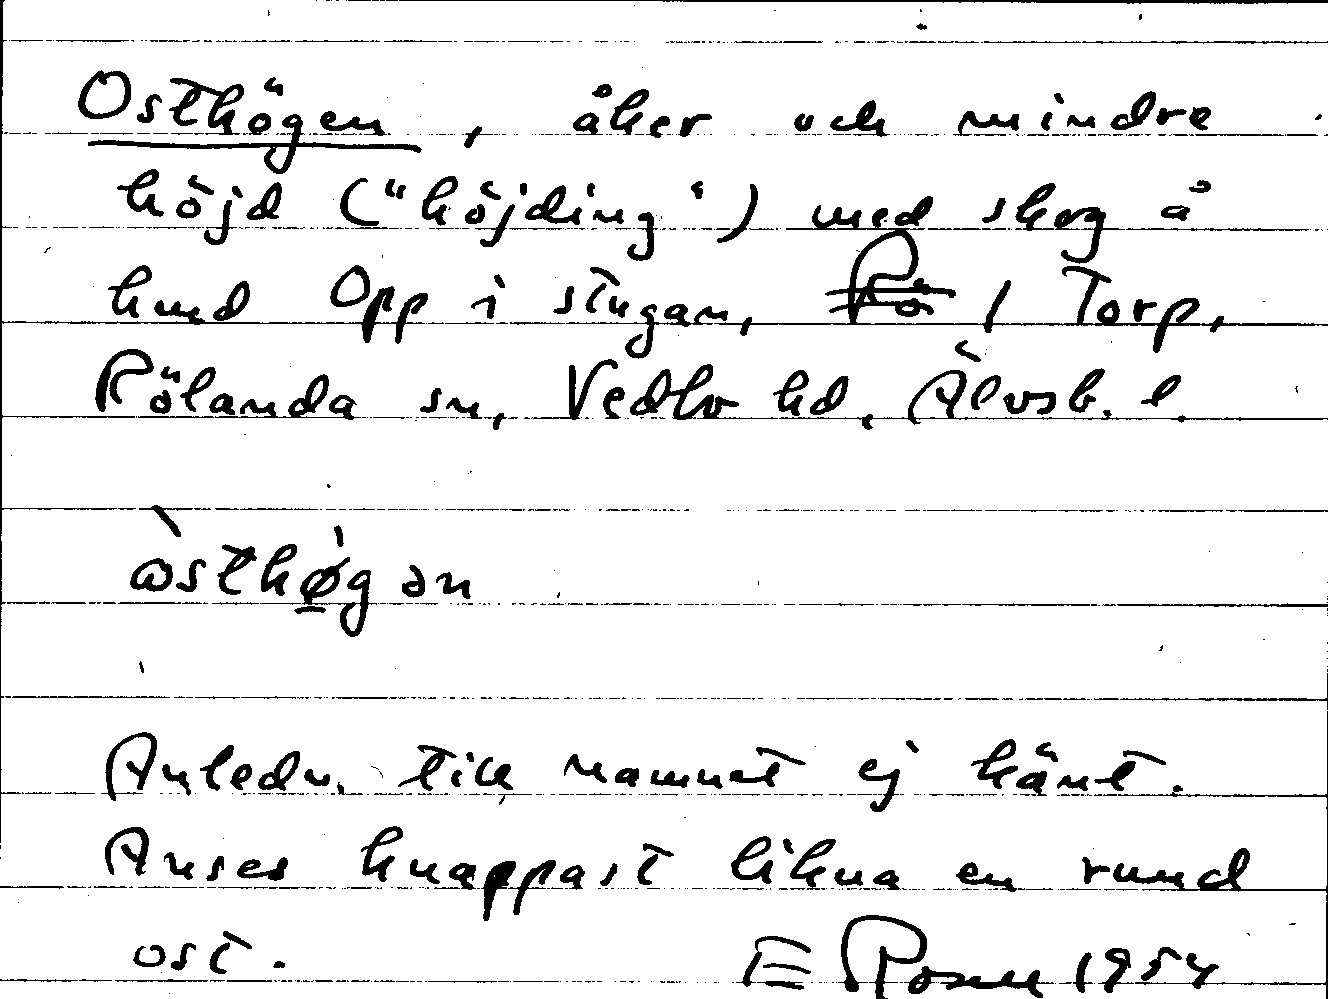 Osthögen, åker och mindre
höjd ("höjding") med skog å
hmd Opp i stugan, Rö / Torp,
Rölanda sn, Vedbo hd, Älvsb. l.
òsthø̀gən
Anledn. till namnet ej känt.
Anses knappast likna en rund
ost. E Rosell 1954